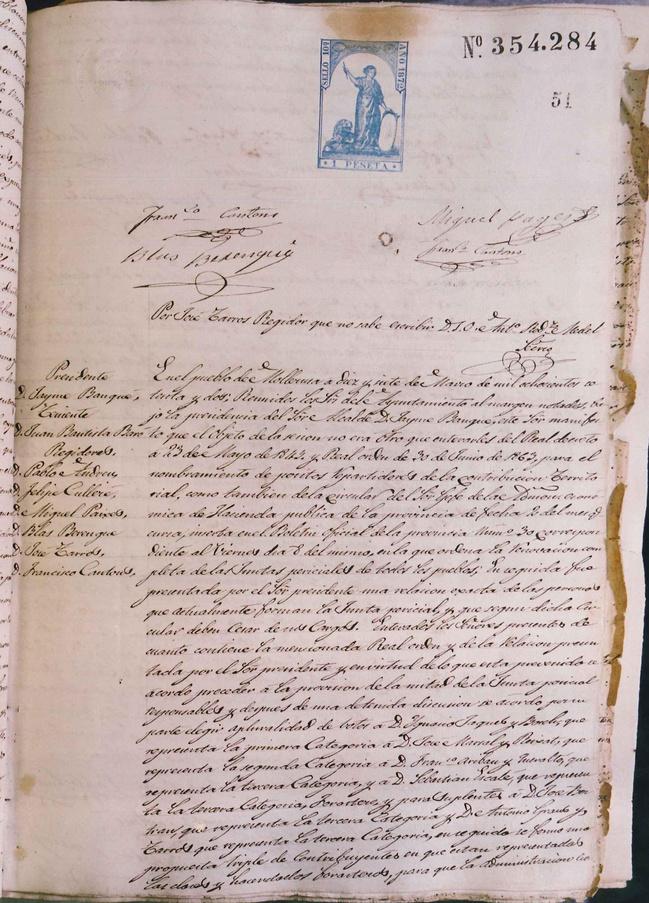 Nº 354.284
51
SELLO 10º AÑO 1872
1 PESETA
Fran.co Cantons
Miguel Pages
Blas Berengué
Fran.co Cantons
Por José Tarros Regidor que no sabe escribir D. S. O.
Presidente
D. Jayme Banque,
Teniente
D. Juan Bautista Baró
Regidores
D. Pablo Andreu
D. Felipe Culleré,
D. Miguel Paixes,
D. Blas Berengue
D. José Tarrós,
D. Francisco Cantons,
En el pueblo de Mollerusa à diez y siete de Marzo de mil ochocientos se
tenta y dos; Reunidos los Sres del Ayuntamiento al margen notados, ba
jo la presidencia del Sor Alcalde D. Jayme Banque, este Sor manifes
to que el objeto de la sesion no era otro que enterarles del Real decreto
à 23 de Mayo de 1845 y Real orden de 30 de Junio de 1863, para el
nombramiento de peritos repartidores de la contribucion Territo
rial, como tambien de la circular del Sor Gefe de la Admon econo
mica de Hacienda publica de la provincia de fecha 2 del mes de
cursa, inserta en el Boletin oficial de la provincia Numo 30 correspon
diente al Viernes dia 8 del mismo, en la que ordena la renovacion com
pleta de las Juntas periciales de todos los pueblos; En seguida fue
presentada por el Sor presidente una relacion exacta de las personas
que actualmente forman la Junta pericial, y que segun dicha Cir
cular deben cesar de sus cargos. Enterados los Señores presentes de
cuanto contiene la mencionada Real orden y de la relacion presen
tada por el Sor presidente y en virtud de lo que esta prevenido se
acordo proceder à la provision de la mitad de la Junta pericial
responsables y despues de una detenida discusion se acordo para
parte elegir a pluralidad de votos à D. Ignacio Jaques y Borch, que
representa la primera Categoria à D. Jose Marsal y que
representa la segunda Categoria à D. Fran.co Aribau y que
representa la tercera Categoria, y à D. Sebastian que represen
ta la tercera Categoria, Forasteros y para Suplentes à D. Jose Bel
tran, que representa la tercera Categoria y D. Antonio y
Tarros que representa la tercera Categoria, en seguida se formo una
propuesta triple de Contribuyentes en que estan representadas
las clases y hacendados forasteros, para que la administracion